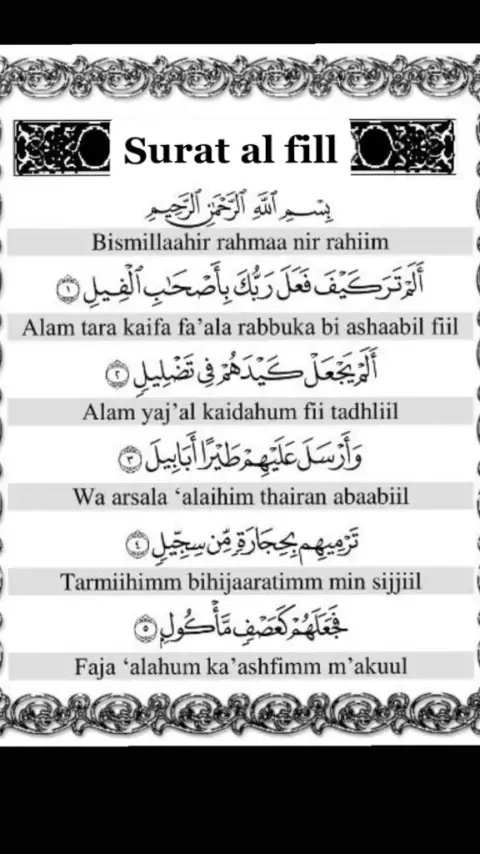 Surat al fill
بِسْمِ اللَّهِ الرَّحْمَٰنِ الرَّحِيمِ
Bismillaahir rahmaa nir rahiim
أَلَمْ تَرَ كَيْفَ فَعَلَ رَبُّكَ بِأَصْحَابِ الْفِيلِ ١
Alam tara kaifa fa’ala rabbuka bi ashaabil fiil
أَلَمْ يَجْعَلْ كَيْدَهُمْ فِي تَضْلِيلٍ ٢
Alam yaj’al kaidahum fii tadhliil
وَأَرْسَلَ عَلَيْهِمْ طَيْرًا أَبَابِيلَ ٣
Wa arsala ‘alaihim thairan abaabiil
تَرْمِيهِم بِحِجَارَةٍ مِّن سِجِّيلٍ ٤
Tarmiihimm bihijaaratimm min sijjiil
فَجَعَلَهُمْ كَعَصْفٍ مَّأْكُولٍ ٥
Faja ‘alahum ka’ashfimm m’akuul